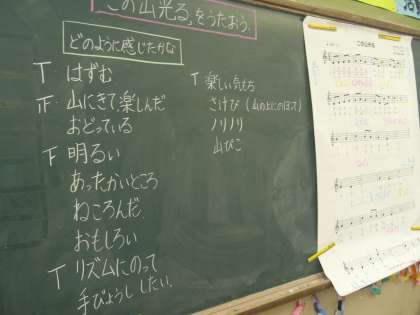 この山光る」をうたおう。
どのように感じたかな
T はずむ
正 山にきて楽しんだ
おどっている
下 明るい
あったかいところ
ねころんだ
おもしろい
T リズムにのって
手びょうし したい。
T 楽しい気もち
さけび(山の上にのぼって)
ノリノリ
山びこ
この山光る